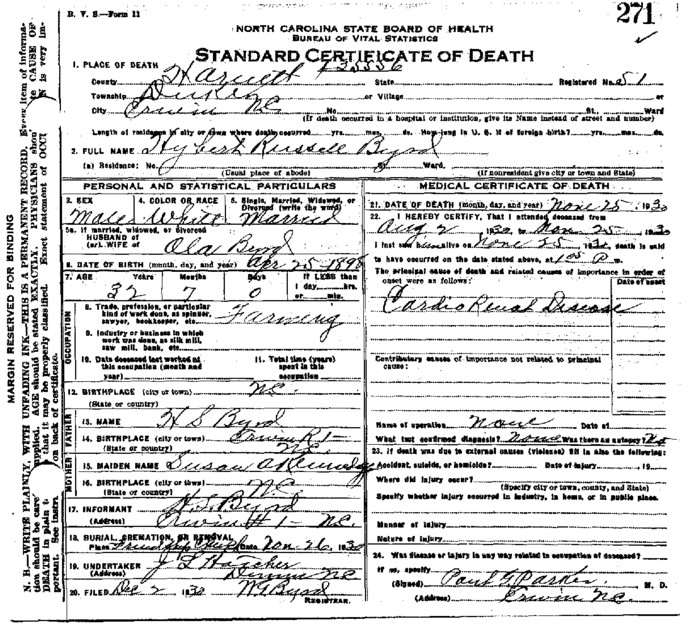 B. V. S.—Form 11
271
NORTH CAROLINA STATE BOARD OF HEALTH
BUREAU OF VITAL STATISTICS
STANDARD CERTIFICATE OF DEATH
1. PLACE OF DEATH
County Harnett State Registered No. 51
Township Duke or Village
City Erwin N.C. St., Ward
(If death occurred in a hospital or institution, give its Name instead of street and number)
Length of residence in city or town where death occurred yrs. mos. ds. How long in U. S. if of foreign birth? yrs. mos. ds.
2. FULL NAME Hybert Russell Byrd
(a) Residence: No. Ward.
(Usual place of abode) (If nonresident give city or town and State)
PERSONAL AND STATISTICAL PARTICULARS
3. SEX 4. COLOR OR RACE 5. Single, Married, Widowed, or Divorced (write the word)
Male White Married
5a. If married, widowed, or divorced
HUSBAND of
(or) WIFE of Ola Byrd
6. DATE OF BIRTH (month, day, and year) Apr 25-1898
7. AGE Years Months Days If LESS than
1 day, hrs.
or min.
32 7 0
OCCUPATION
8. Trade, profession, or particular
kind of work done, as spinner,
sawyer, bookkeeper, etc. Farming
9. Industry or business in which
work was done, as silk mill,
saw mill, bank, etc.
10. Date deceased last worked at
this occupation (month and
year)
11. Total time (years)
spent in this
occupation
12. BIRTHPLACE (city or town) N.C.
(State or country)
FATHER
13. NAME H S Byrd
14. BIRTHPLACE (city or town) Erwin R 1-
(State or country) N.C.
MOTHER
15. MAIDEN NAME Susan A
16. BIRTHPLACE (city or town) N.C.
(State or country)
17. INFORMANT H. S. Byrd
(Address) Erwin # 1- N.C.
18. BURIAL, CREMATION, OR REMOVAL
Place Date Nov. 26, 1930
19. UNDERTAKER J L Hatcher
(Address) Dunn N.C.
20. FILED Dec 2 1930 Byrd
REGISTRAR.
MEDICAL CERTIFICATE OF DEATH
21. DATE OF DEATH (month, day, and year) Nov. 25, 1930
22. I HEREBY CERTIFY, That I attended deceased from
Aug 2 1930, to Nov. 25, 1930
I last saw him alive on Nov 25 1930, death is said
to have occurred on the date stated above, at P m.
The principal cause of death and related causes of importance in order of
onset were as follows: Date of onset
Cardio Renal Disease
Contributory causes of importance not related to principal
cause:
Name of operation None Date of
What test confirmed diagnosis? None Was there an autopsy? No
23. If death was due to external causes (violence) fill in also the following:
Accident, suicide, or homicide? Date of injury 19
Where did injury occur?
(Specify city or town, county, and State)
Specify whether injury occurred in industry, in home, or in public place.
Manner of injury
Nature of injury
24. Was disease or injury in any way related to occupation of deceased?
If so, specify
(Signed) Paul G. Parker, M. D.
(Address) Erwin N.C.
MARGIN RESERVED FOR BINDING